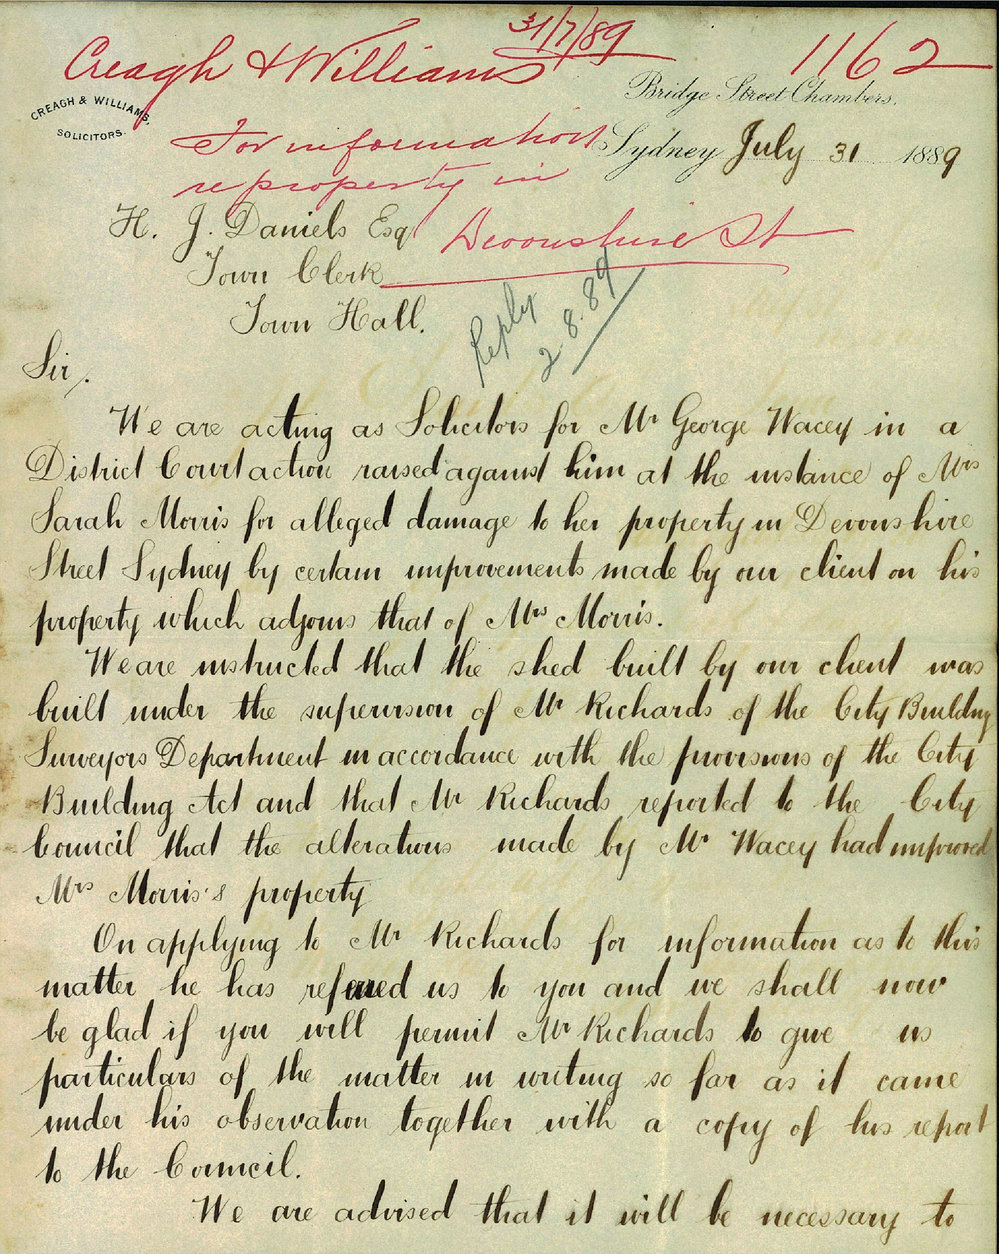 31/7/89
Creagh & Williams
1162
CREAGH & WILLIAMS,
SOLICITORS.
Bridge Street Chambers.
For information
re property in
Devonshire St
Sydney July 31 1889
H. J. Daniels Esq
Town Clerk
Town Hall.
Reply
2.8.89
Sir/.
We are acting as Solicitors for Mr George Wacey in a
District Court action raised against him at the instance of Mrs
Sarah Morris for alleged damage to her property in Devonshire
Street Sydney by certain improvements made by our client on his
property which adjoins that of Mrs Morris.
We are instructed that the shed built by our client was
built under the supervision of Mr Richards of the City Building
Surveyors Department in accordance with the provisions of the City
Building Act and that Mr Richards reported to the City
Council that the alterations made by Mr Wacey had improved
Mrs Morris's property
On applying to Mr Richards for information as to this
matter he has refered us to you and we shall now
be glad if you will permit Mr Richards to give us
particulars of the matter in writing so far as it came
under his observation together with a copy of his report
to the Council.
We are advised that it will be necessary to